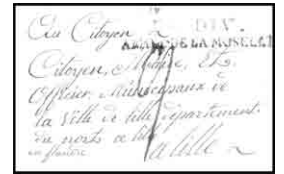 Au Citoyen
ARM. DE LA MOSELLE
Citoyen, Maire, Et
Officier, Municipaux de
la Ville de lille département
du nord a lille
en flandre a lille